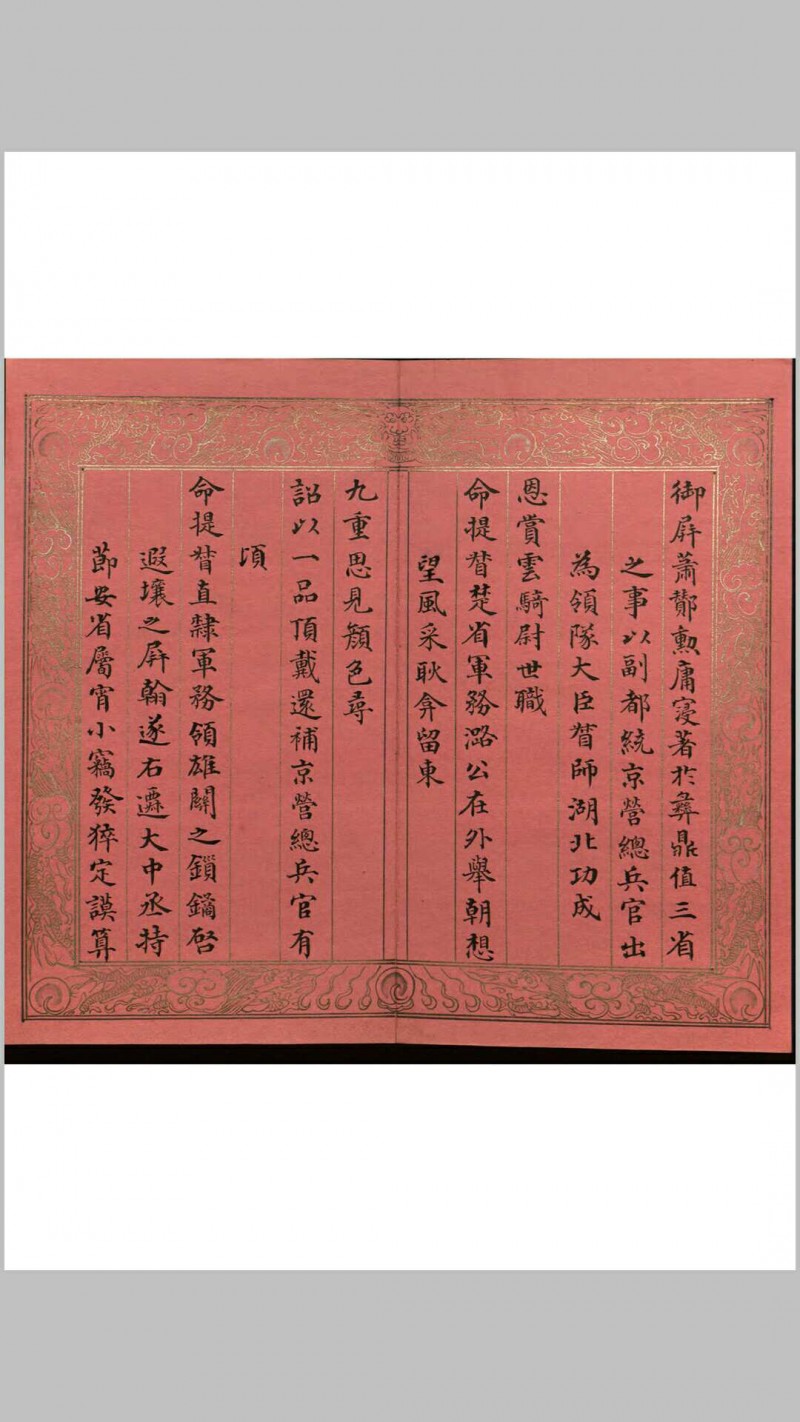 御屏蕭鄼勲庸寖著扵彝鼎值三省
之事以副都統京營總兵官出
為領隊大臣督師湖北功成
恩賞雲騎尉世職
命提督楚省軍務潞公在外舉朝想
望風采耿弇留東
九重思見顏色尋
詔以一品頂戴還補京營總兵官有
頃
命提督直隸軍務領雄關之鎖鑰啓
遐壤之屏翰遂右遷大中丞持
節安省屬宵小竊發猝定謨算